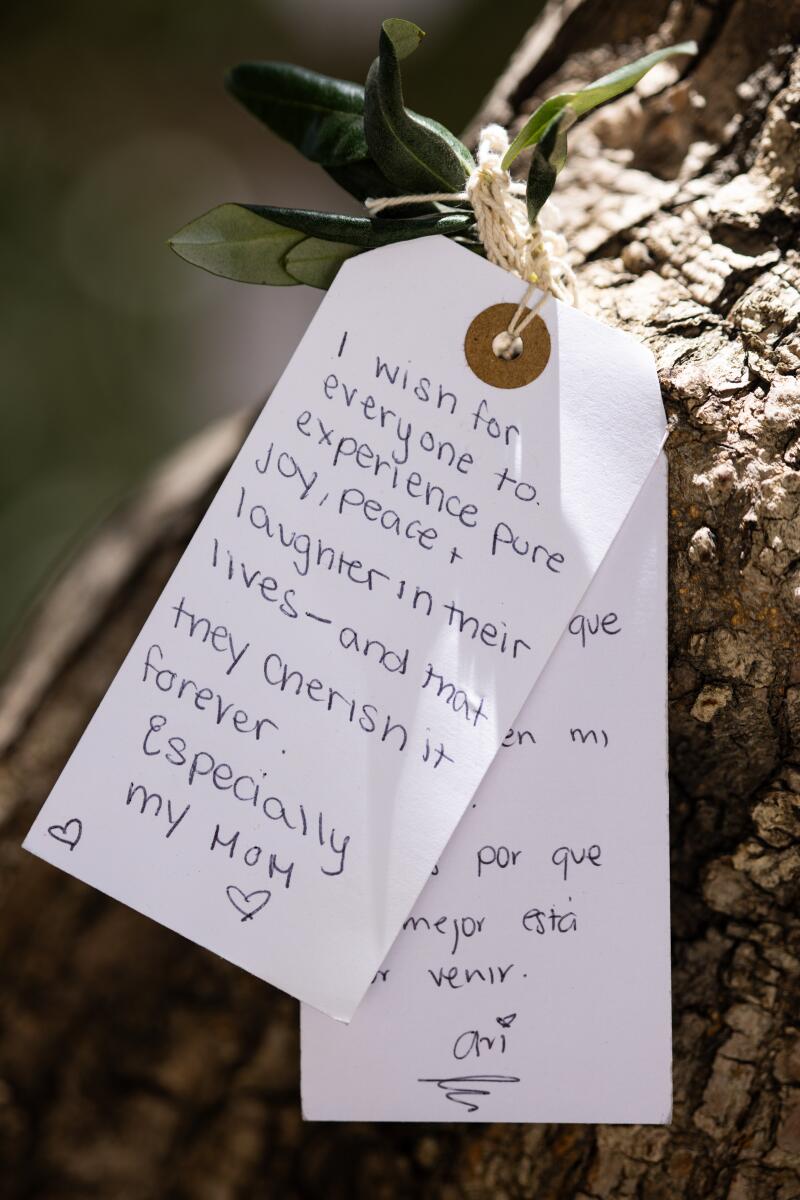 I wish for
everyone to.
experience pure
joy, peace +
laughter in their
lives – and that
they cherish it
forever.
Especially
my MOM
que
en mi
por que
mejor está
venir.
ari